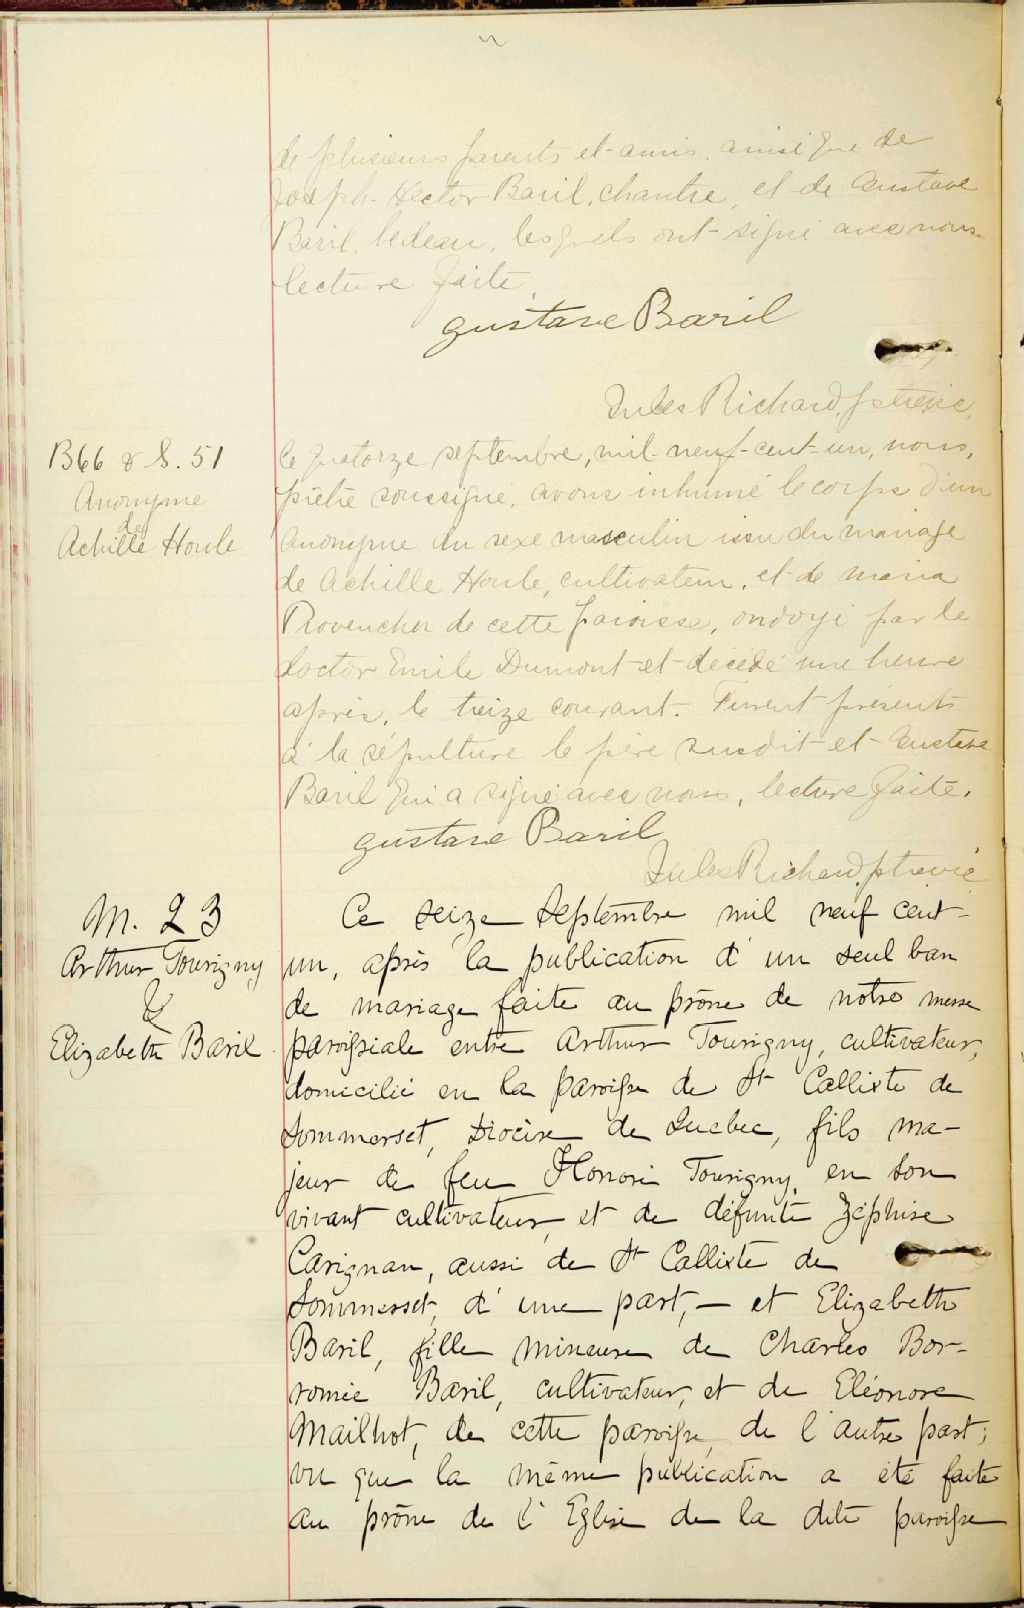 de plusieurs parents et amis, ainsi que de
Joseph-Hector Baril, chantre, et de Gustave
Baril, bedeau, lesquels ont signé avec nous.
lecture faite.
Gustave Baril
Jules Richard, ptre vic,
B66 & S. 51
Anonyme
de
Achille Houle
Le quatorze septembre, mil-neuf-cent-un, nous,
prêtre soussigné, avons inhumé le corps d'un
Anonyme du sexe masculin issu du mariage
de Achille Houle, cultivateur, et de Maria
Provencher de cette paroisse, ondoyé par le
docteur Emile Dumont et décédé une heure
après, le treize courant. Furent présents
à la sépulture le père susdit et Gustave
Baril qui a signé avec nous, lecture faite.
Gustave Baril
Jules Richard, ptre vic
M. 23
Arthur Tourigny
&
Elizabeth Baril
Ce seize Septembre mil neuf cent-
un, après la publication d'un seul ban
de mariage faite au prône de notre messe
paroissiale entre Arthur Tourigny, cultivateur,
domicilié en la paroisse de St Callixte de
Sommerset, Diocèse de Quebec, fils ma-
jeur de feu Honoré Tourigny, en son
vivant cultivateur, et de défunte Zéphise
Carignan, aussi de St Callixte de
Sommerset, d'une part, — et Elizabeth
Baril, fille mineure de Charles Bor-
romée Baril, cultivateur, et de Eléonore
Mailhot, de cette paroisse, de l'autre part;
vu que la même publication a été faite
au prône de l'Eglise de la dite paroisse